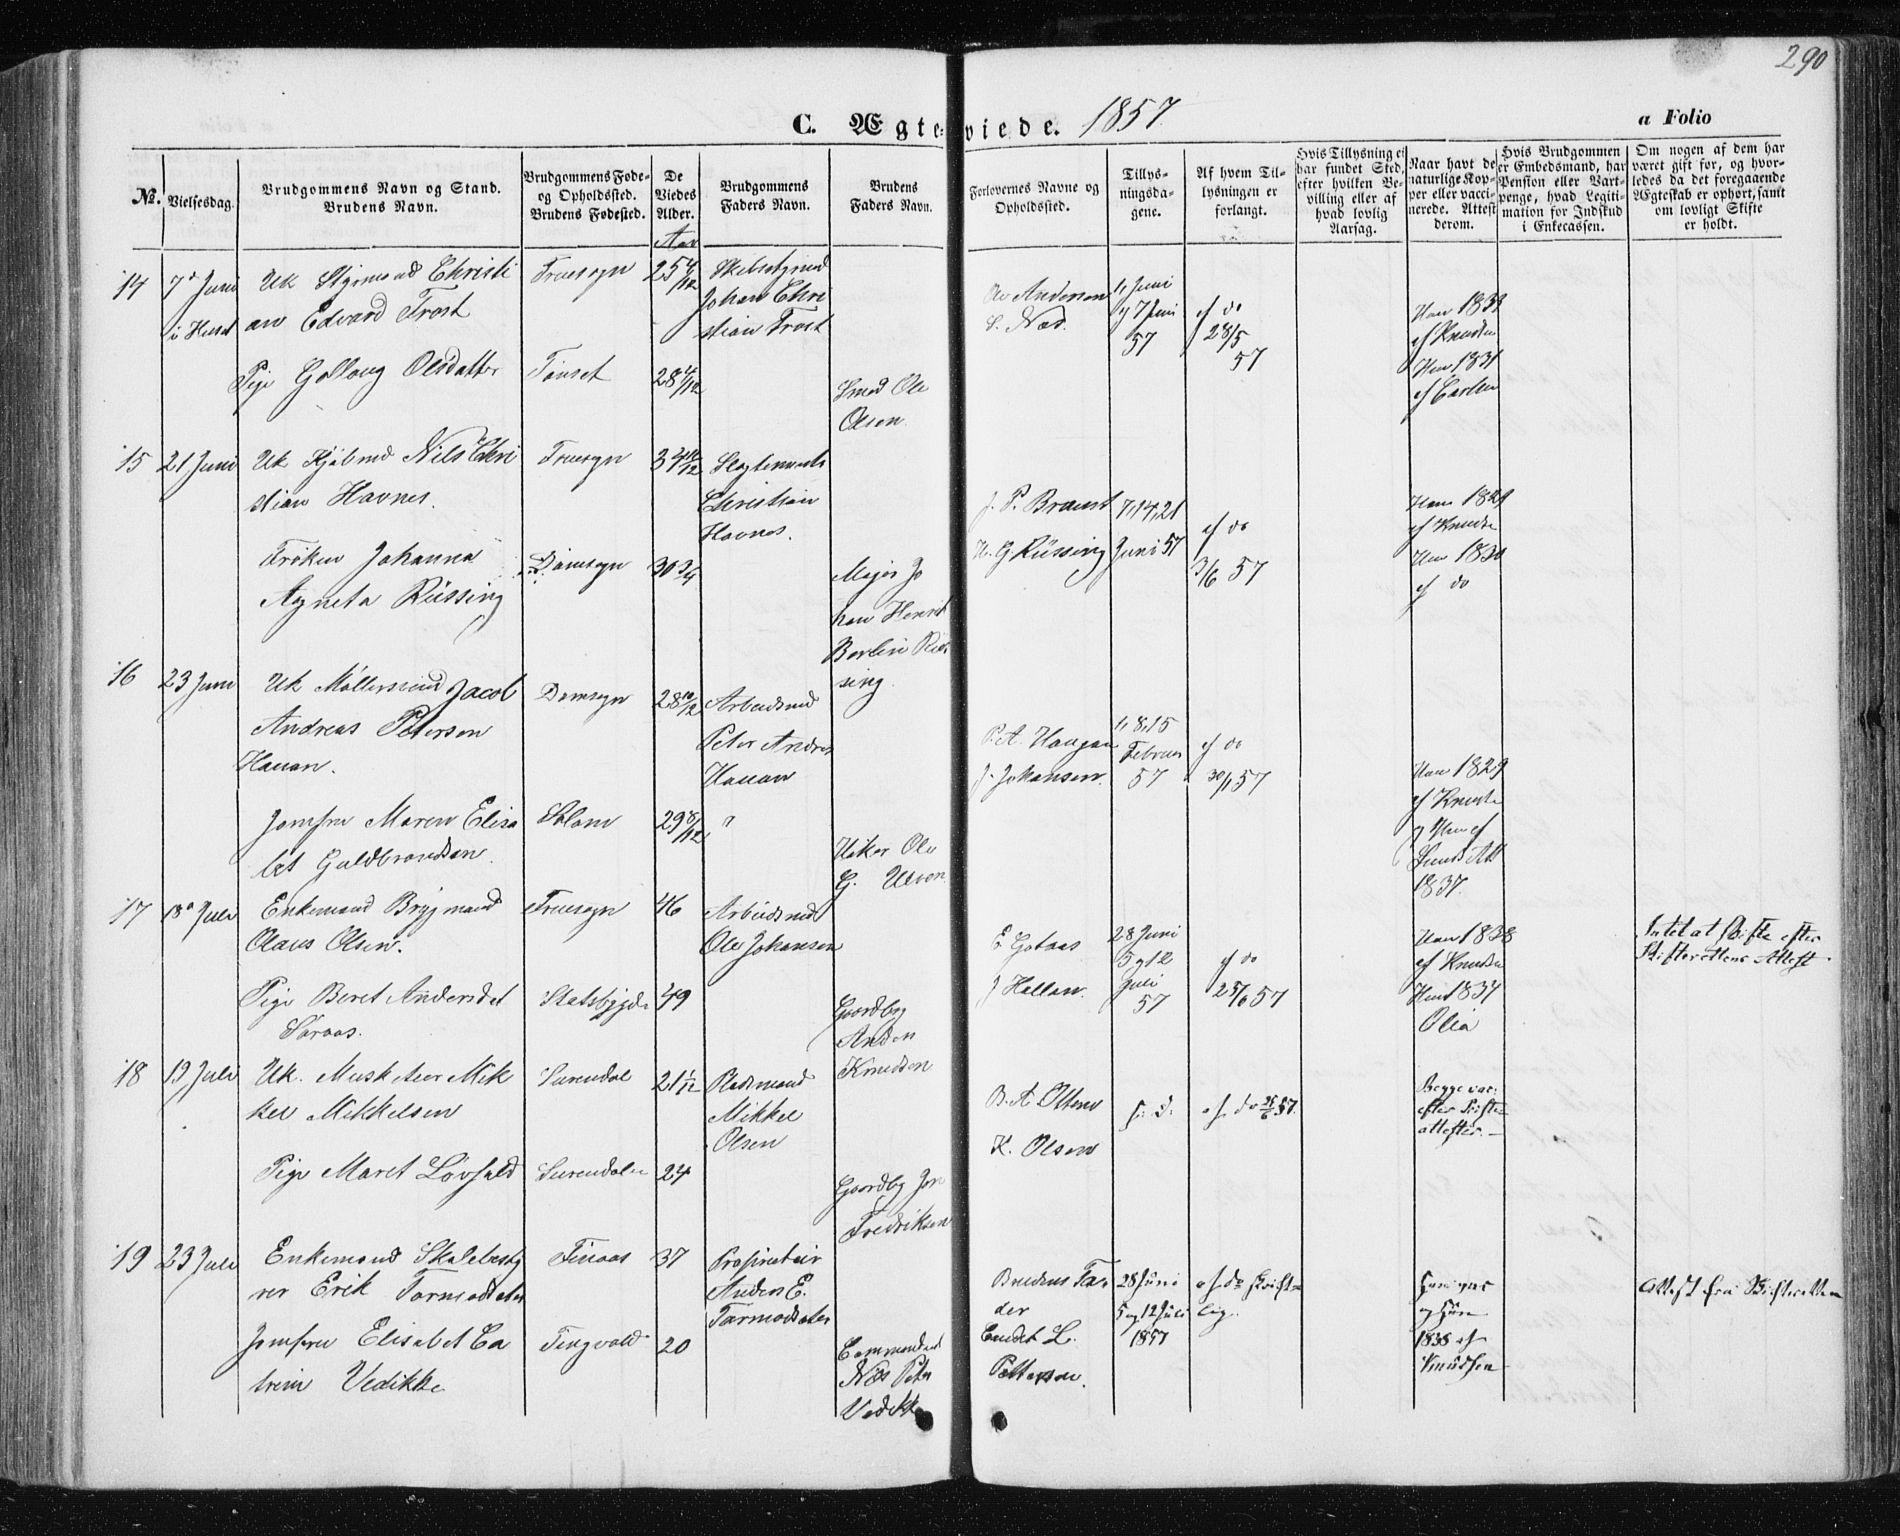 290
C. Ægteviede. 1857
a Folio
No.
Vielsesdag.
Brudgommens Navn og Stand.
Brudens Navn.
Brudgommens Føde-
og Opholdssted.
Brudens Fødested.
De
Viedes
Alder.
Brudgommens
Faders Navn.
Brudens
Faders Navn.
Forlovernes Navne og
Opholdssted.
Tillys-
ningsda-
gene.
Af hvem Til-
lysningen er
forlangt.
Hvis Tillysning ei
har fundet Sted,
efter hvilken Be-
villing eller af
hvad lovlig
Aarsag.
Naar havt de
naturlige Kop-
per eller vacci-
nerede. Attest
derom.
Hvis Brudgommen
er Embedsmand, har
Pension eller Vart-
penge, hvad Legiti-
mation for Indskud
i Enkecassen.
Om nogen af dem har
været gift før, og hvor-
ledes da det foregaaende
Ægteskab er ophørt, samt
om lovligt Skifte
er holdt.
Aar
14 7de Juni
i Huset
Uk Styrmand Christi
an Edvard Trost
Fruesogn
25 4/12
Johan Chri
stian Trost
Ole Andersen
S. Næs.
1, Juni
og 7 Juni
57
af do
28/5
57
Ham 1833
af Knudsen
Pige Golloug Olsdatter
Tønset
28 4/12
Smed Ole
Olsen
Hun 1831
af Carlsen
15 21 Juni
Uk Kjøbmd Nils Chri
stian Havnes.
Fruesogn
34 10/12
Christian
Havnes.
J. P. Braust
H. G. Rüssing
7, 14, 21
Juni 57
af do
3/6 57
Ham 1829
af Knudsen
Frøken Johanna
Agneta Rüssing
Domsogn
30 3/4
Major Jo
han Henrik
Berlin Rüs
sing
Hun 1830
af do
16 23 Juni
Uk Møllersvend Jacob
Andreas Petersen
Hauan.
Domsogn
28 10/12
Arbeidsmd
Peter Andres
Hauan
P. A. Haugan
J. Johansen.
1, 8, 15
Februar
57
af do
30/1 57
Ham 1829
af Knudsen
Jomfru Maren Elisa
bet Guldbrandsen.
29 8/12
"
Ole
G. Ulven
og Hun af
1837.
17 18de Juli
Enkemand Brygmand
Olaus Olsen.
Fruesogn
46
Arbeidsmd
Ole Johansen
E. Gotaas
J Hallan.
28 Juni
5 og 12
Juli
57
af do
25/6 57
Ham 1838
af Knudsen
Intet at skifte efter
Skifterettens Attest
Pige Beret Andersdat
Søraas.
Statsbygden
49
Gaardbr
Anders
Knudsen
Hun 1834
18 19 Juli
Uk. Musketeer Mik
kel Mikkelsen
Surendal
21 1/12
Pladsmand
Mikkel
Olsen
B. A. Olsen
K. Olsen
s. d.
af do 25/6 57.
Begge vac.
efter Præste-
attester.
Pige Maret Løvfald
Surendalen
24
Gaardbr Jon
Fredriksen
19 23 Juli
Enkemand Skolebesty
rer Erik Tormodsæter
37
Proprietair
Anders E.
Tormodsæter
Brudens Fa-
der
28 Juni
5 og 12 Juli
1857
af do skrift-
lig.
Ham vac
og Hun
1838 af
Knudsen
Attest fra Skifteretten
Jomfru Elisabet Ca
trine Vedikke
Tingvold
20
Nils Peter
Vedikke
L.
Pettersen.